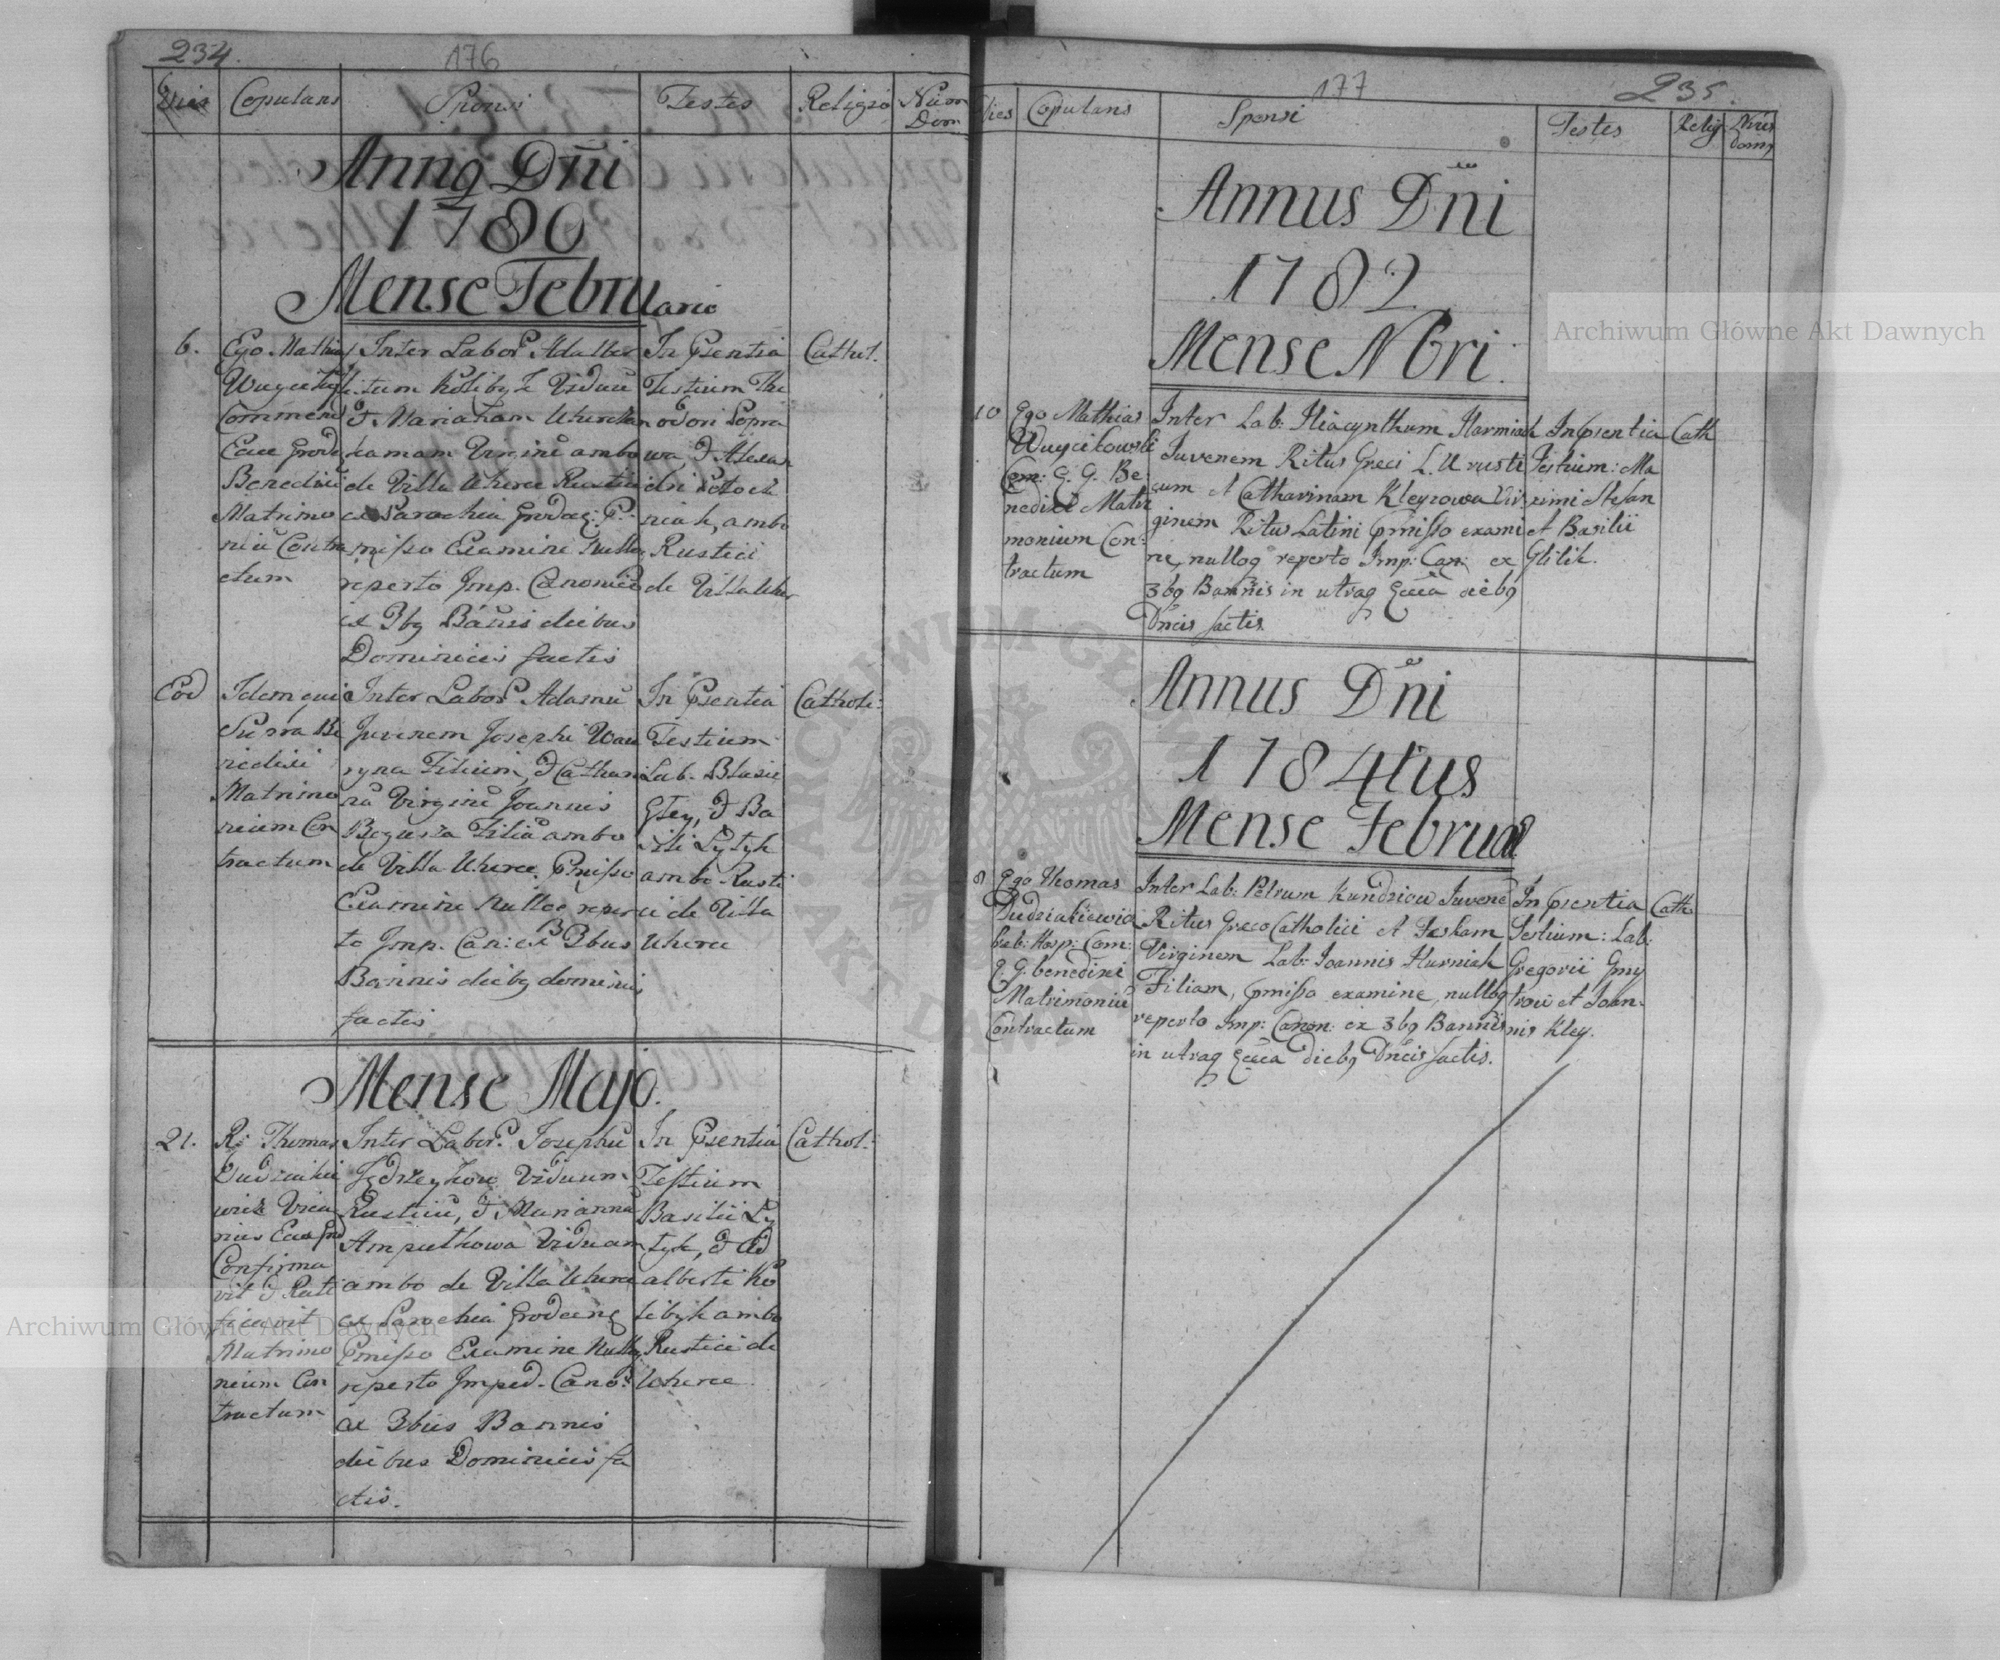 234.
176
Dies
Copulans
Sponsi
Testes
Religio
Num
Dom
Anng Dñi
1780
Mense Februario
6.
Ego Mathias
Commend
Benedixi
Matrimo
niũ Contra
ctum
Inter Labor. Adalber
tum Kolibyk Viduũ
& Mariañam
kamam Virginẽ ambo
de Villa Uherce Rustici
ex Parochia Grodec: P:
misso Examine Nulloq
reperto Imp. Canonico
ex 3bg Bañis diebus
Dominicis factis
In Psentia
Testium The
odori Popro
wa, & Alexan
dri Potoch
niak, ambo
Rustici
de Villa Uher
Cathol.
Eod
Idem qui
Supra Be
nedixi
Matrimo
nium Con
tractum
Inter Labor. Adamũ
Juvenem Josephi Waw
ryna Filium, & Cathari
nã Virginẽ Joannis
Filiã ambo
de Villa Uherce, Pmisso
Examine Nulloq reper
to Imp. Can: ex 3bus
Bannis diebg dominicis
factis
In Psentia
Testium
Lab. Blasii
Gley, & Ba
silii Lytyk
ambo Rusti
ci de Villa
Uherce
Catholi:
Mense Majo.
21.
R: Thomas
Dudziakie
wicz Vica
rius Eccae Grod
Confirma
vit & Rati
ficavit
Matrimo
nium Con
tractum
Inter Labor. Josephũ
Jędrzeykow Viduum
Rusticũ, & Mariannã
Viduam
ambo de Villa Uherce
ex Parochia Grodecens
Pmisso Examine Nulloq
reperto Imped. Cano:
ex 3bus Bannis
diebus Dominicis fa
ctis.
In Psentia
Testium
Basilii Ly
tyk, & Ad
alberti Ko
libyk ambo
Rustici de
Uherce
Cathol.
177
235.
Dies
Copulans
Sponsi
Testes
Relig
Nrus
domg
Annus Dñi
1782
Mense Nbri.
10
Ego Mathias
Wuycikowski
Com: G. G. Be
nedixi Matri
monium Con:
tractum
Inter Lab: Hiacynthum Harmiak
Juvenem Ritus Greci L. U rusti
cum et Catharinam Kleyzowa Vir
ginem Ritus Latini pmisso exami
ne, nulloq reperto Imp: Can: ex
3bg Bannis in utraq Ecca diebg
Dñcis factis.
In psentia
Testium: Ma
ximi Stefan
et Basilii
Glilik.
Cath
Annus Dñi
1784tus
Mense Februar
8
Ego Thomas
Dudziakiewicz
Com:
G. G. benedixi
Matrimoniũ
Contractum
Inter Lab: Petrum Kundziow Juvenẽ
Ritus Greco Catholici et Teskam
Virginem Lab: Joannis Hurniak
Filiam, pmisso examine, nulloq
reperto Imp: Canon: ex 3bg Bannis
in utraq Ecca diebg Dñcis factis.
In psentia
Testium: Lab:
Gregorii Gmy
trow et Joan-
nis Kley.
Cath
Archiwum Główne Akt Dawnych
Archiwum Główne Akt Dawnych
ARCHIWUM GŁÓWNE AKT DAWNYCH